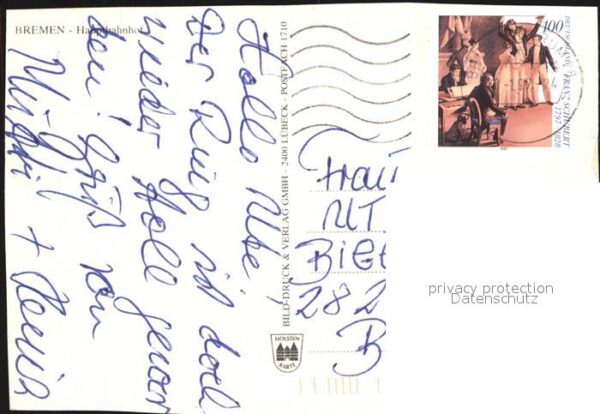 BREMEN - Hauptbahnhof
Hallo Ute!
Der Ring ist doch
wieder Heil gewor
den! Gruß von
+
BILD-DRUCK & VERLAG GMBH - 2400 LÜBECK - POSTFACH 1710
100
DEUTSCHLAND
FRANZ SCHUBERT
1797-1828
Frau
UT
BiGt
282
B
HOLSTEN
KARTE
privacy protection
Datenschutz